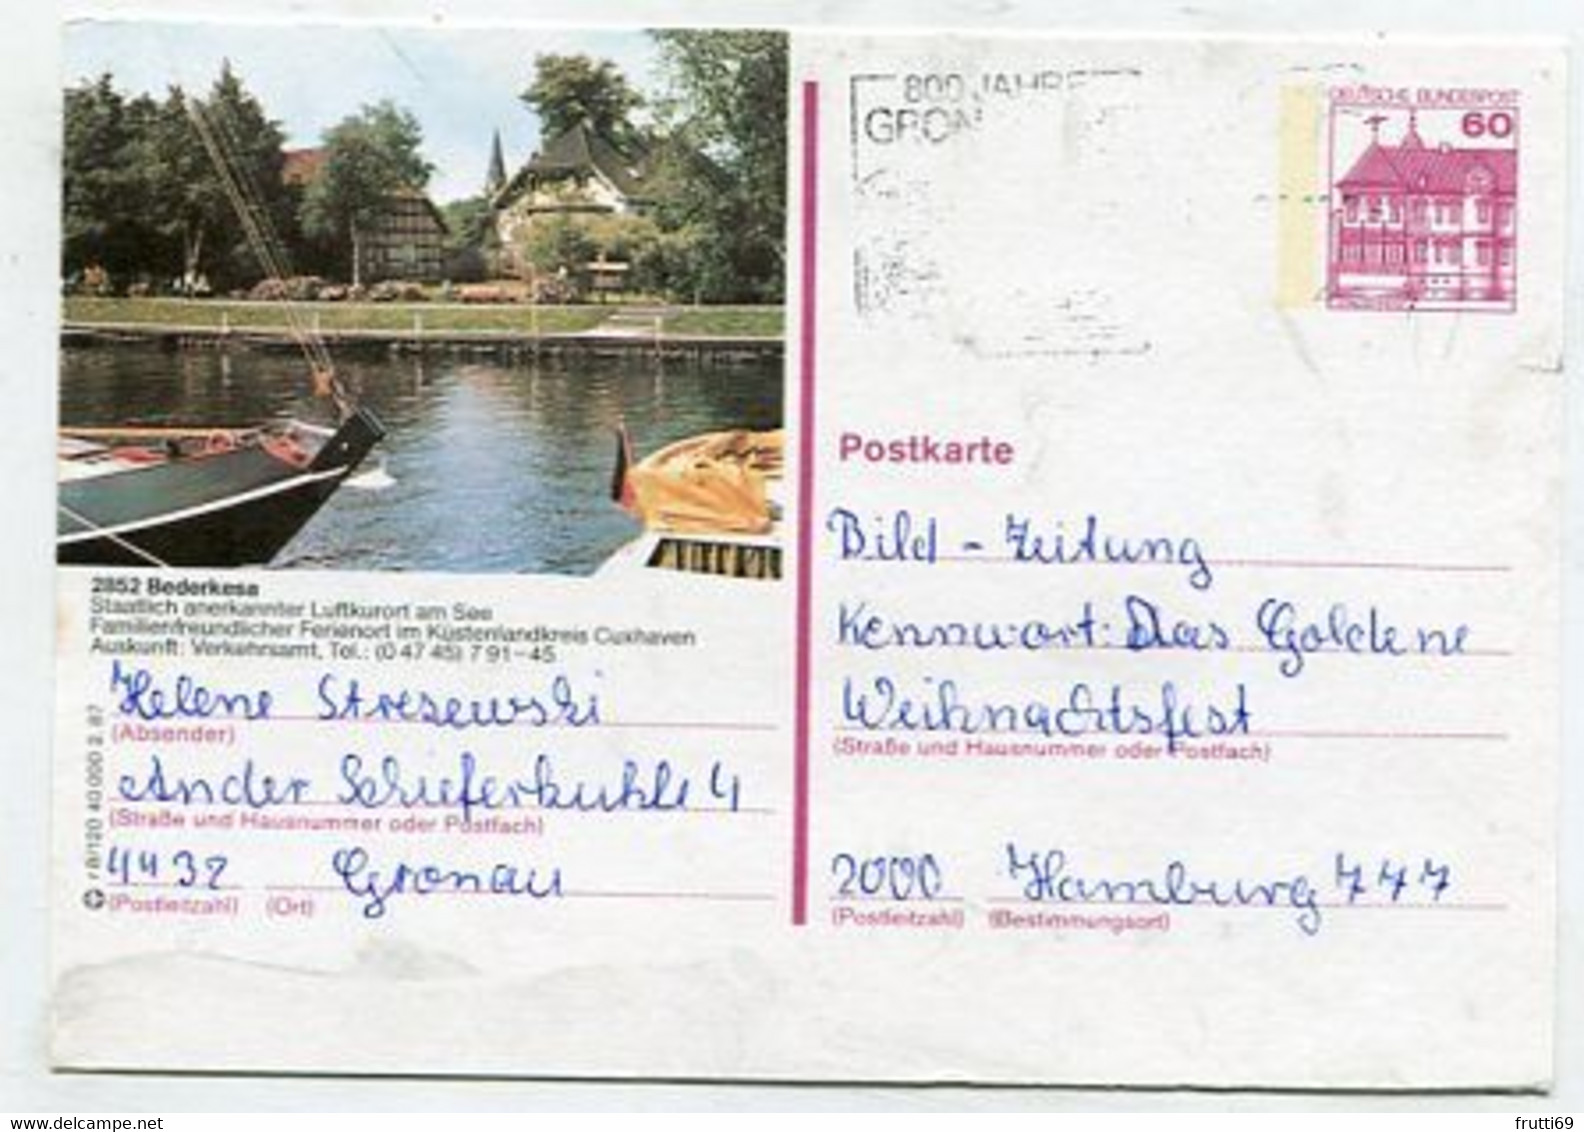 800 JAHRE
GRON
DEUTSCHE BUNDESPOST
60
Postkarte
Bild - Zeitung
Kennwort: Das Goldene
Weihnachtsfest
(Straße und Hausnummer oder Postfach)
2000 Hamburg 777
(Postleitzahl) (Bestimmungsort)
2852 Bederkesa
Staatlich anerkannter Luftkurort am See
Familienfreundlicher Ferienort im Küstenlandkreis Cuxhaven
Auskunft: Verkehrsamt, Tel.: (0 47 45) 7 91-45
Helene Stresewski
(Absender)
An der Schieferkuhle 4
(Straße und Hausnummer oder Postfach)
4432 Gronau
(Postleitzahl) (Ort)
r 8/120 40 000 2.87
frutti69